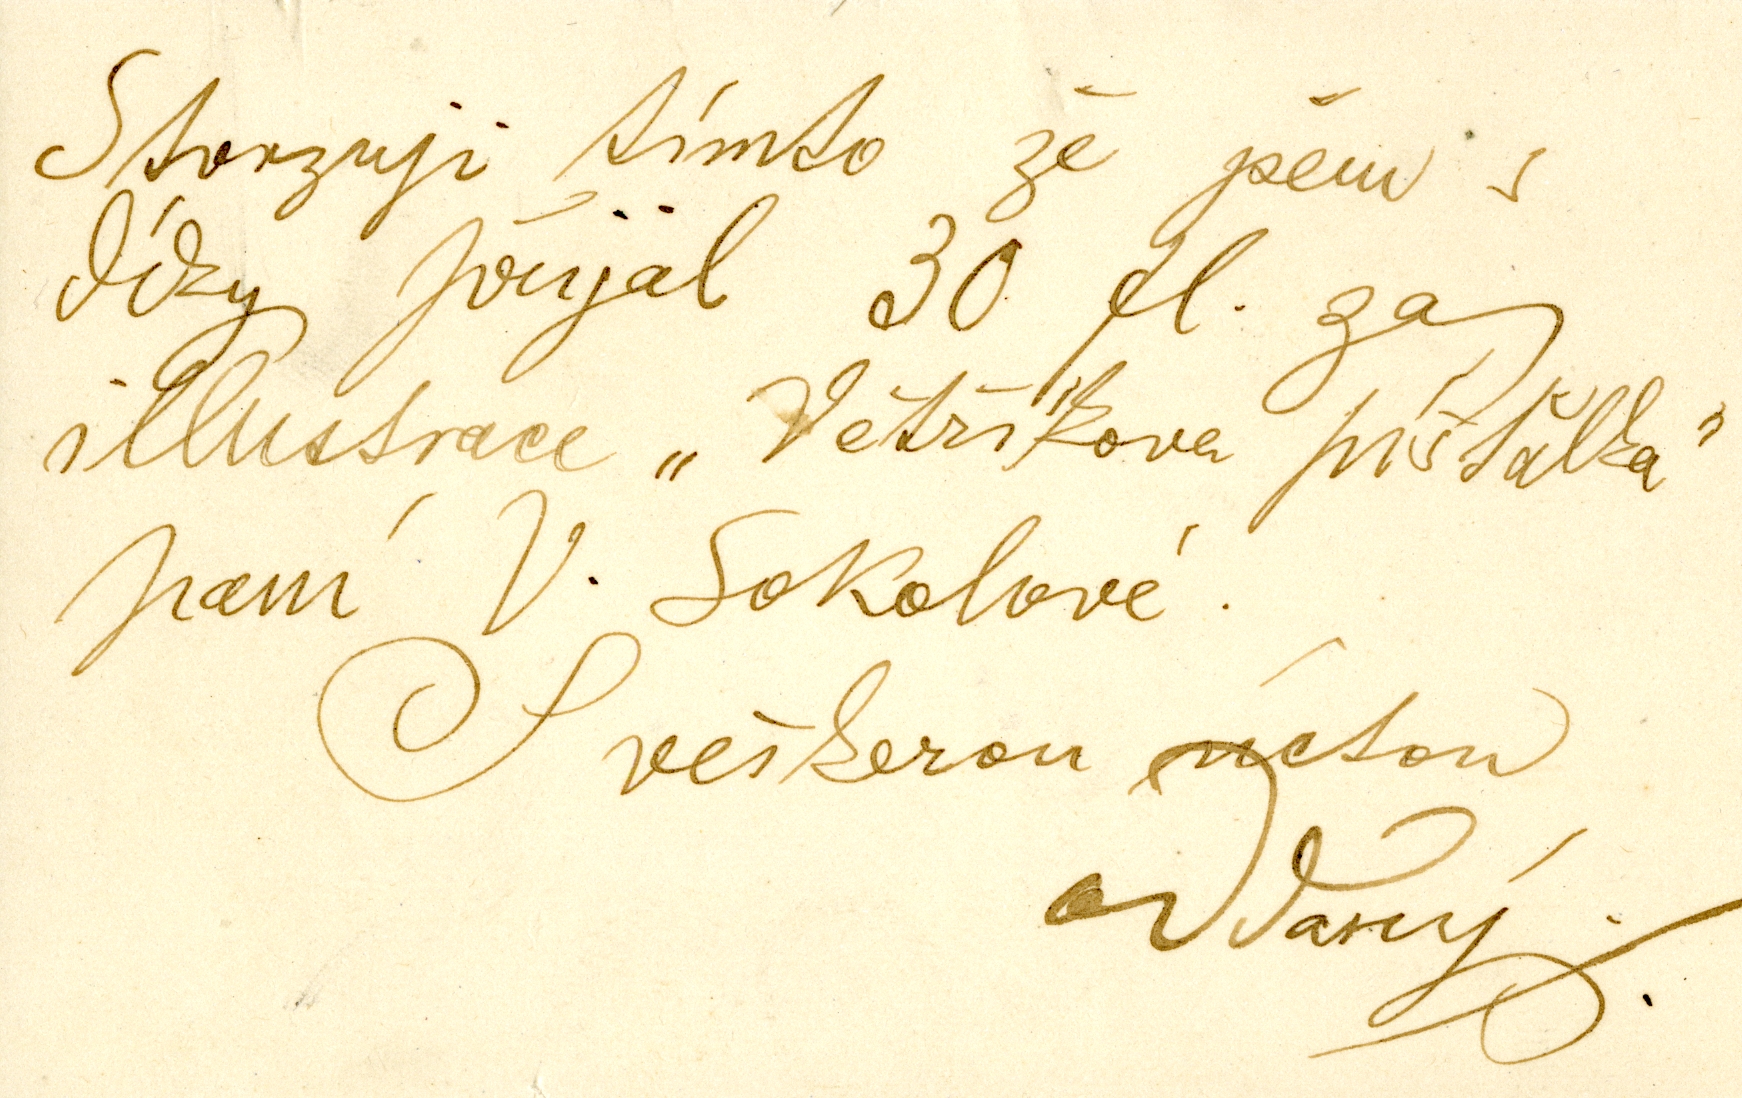 Stvrzuji tímto že jsem s
díky přijal 30 zl. za
illustrace „Větříkova píšťalka"
paní V. Sokolové.
S veškerou úctou
oddaný